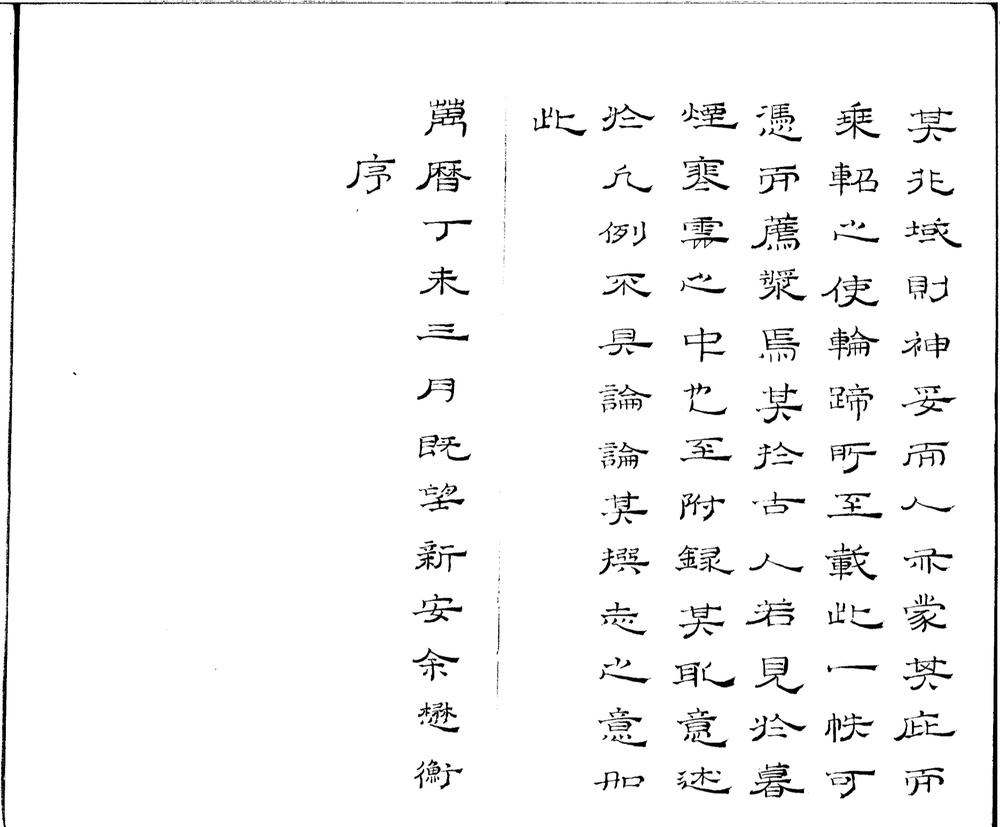 其兆域則神妥而人亦蒙其庇而
乘軺之使輪蹄所至載此一帙可
憑而薦漿焉其於古人若見於暮
煙寒之中也至附録其取意述
於凡例不具論論其撰志之意如
此
萬曆丁未三月既望新安余懋衡
序